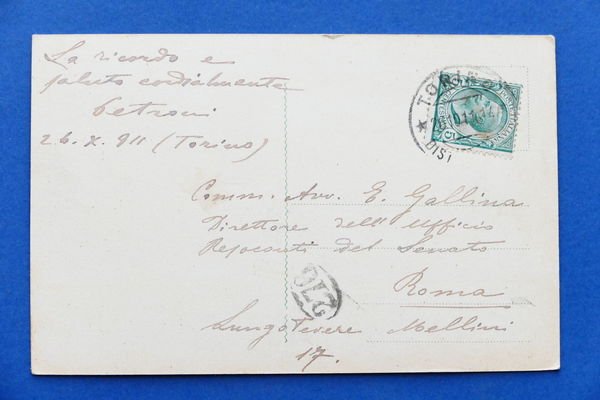 La ricordo e
saluto cordialmente
Petroni
26.X.911 (Torino)
TORINO
DIST
Comm. Avv. E. Gallina
Direttore dell' Ufficio
Resoconti del Senato
Roma
Lungo Tevere Mellini
17.
276